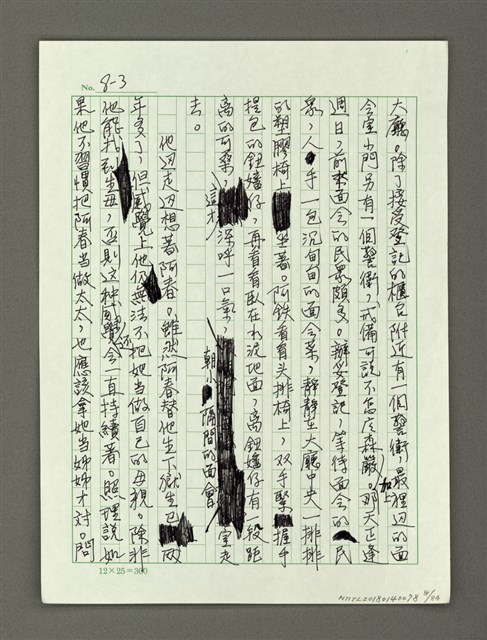 No. 8-3
大廳。除了接受登記的櫃台附近有一個警衛，最裡邊的面
會室小門另有一個警衛，戒備可說不怎麼森嚴。加上那天正逢
週日，前來面會的民眾頗多。辦妥登記，等待面會的民
眾，人手一包沉甸甸的面會菜，靜靜坐大廳中央一排排
的塑膠椅上坐著。阿鉄看看頭排椅上，双手緊握手
提包的鈕嬸仔，再看看臥在水泥地面，离鈕嬸仔有段距
离的阿桑，這才深呼一口氣，朝隔間的面會室走
去。
他边走边想著阿春。雖然阿春替他生下獄生已兩
年多了，但感覺上他仍無法不把她當做自己的母親。除非
他能找到生母，否則這種感覺還會一直持續著。照理說如
果他不習慣把阿春當做太太，也應該拿她當姊姊才對。問
12×25=300
NMTL20180140078